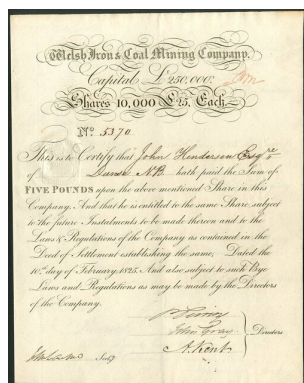 Welsh Iron & Coal Mining Company.
Capital £250,000.
Shares 10,000 £25. Each
No. 5370
This is to Certify that John Henderson Esqre
of Dunse NB hath paid the Sum of
FIVE POUNDS upon the above mentioned Share in this
Company. And that he is entitled to the same Share subject
to the future Instalments to be made thereon and to the
Laws & Regulations of the Company as contained in the
Deed of Settlement establishing the same, Dated the
10th day of February, 1825. And also subject to such Bye
Laws and Regulations as may be made by the Directors
of the Company.
John Gray Directors
A. Kent